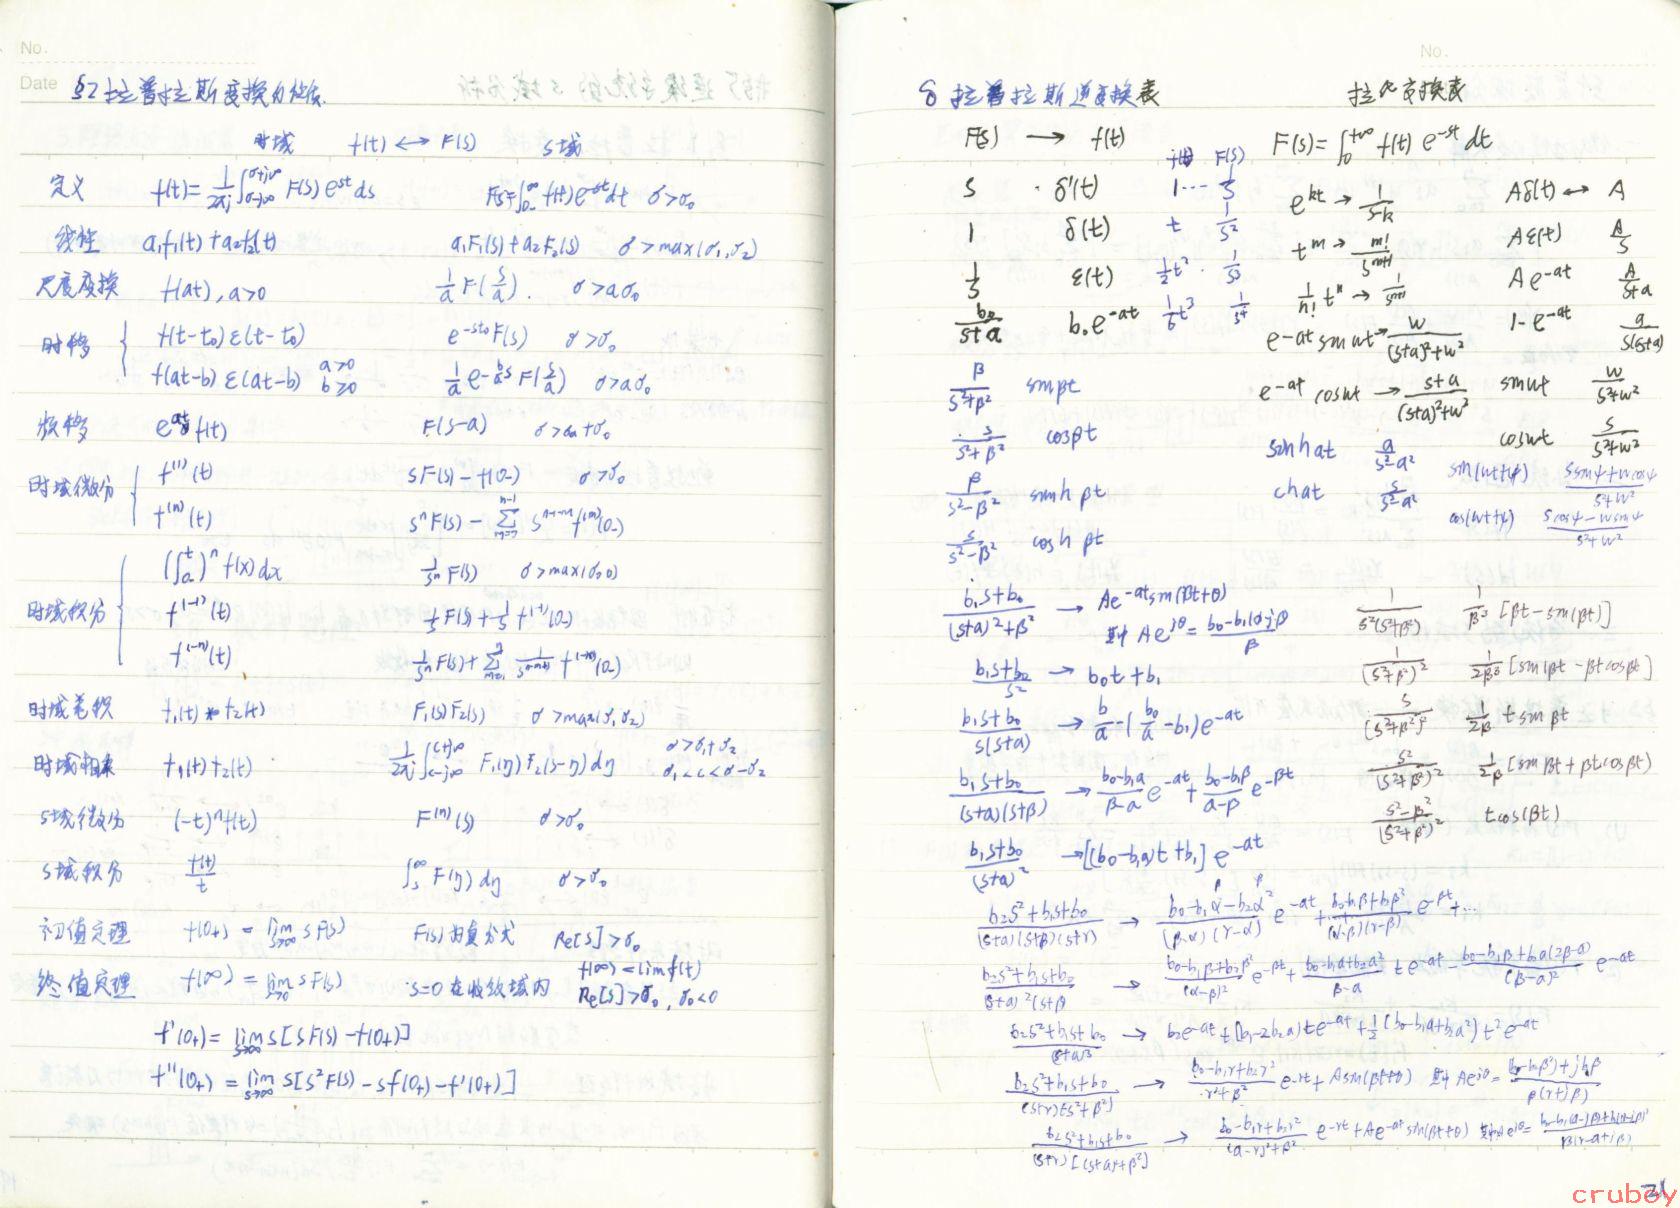 No.
Date §2 拉普拉斯变换的性质.
时域 f(t) ↔ F(s) s域
定义 f(t)=1/2πj ∫σ-j∞^σ+j∞ F(s)e^st ds F(s)=∫0-^∞ f(t)e^-st dt σ>σ0
线性 a1f1(t)+a2f2(t) a1F1(s)+a2F2(s) σ>max(σ1,σ2)
尺度变换 f(at), a>0 1/a F(s/a). σ>aσ0
时移 f(t-t0)ε(t-t0) e^-st0 F(s) σ>σ0
f(at-b)ε(at-b) a>0 b≥0 1/a e^-(b/a)s F(s/a) σ>aσ0
频移 e^at f(t) F(s-a) σ>σa+σ0
时域微分 f^(1)(t) sF(s)-f(0-) σ>σ0
f^(n)(t) s^nF(s)-∑m=0^n-1 s^n-1-m f^(m)(0-)
(∫0^t)^n f(x)dx 1/s^n F(s) σ>max(σ0,0)
时域积分 f^(-1)(t) 1/s F(s)+1/s f^(-1)(0-)
f^(-n)(t) 1/s^n F(s)+∑m=1^n 1/s^n-m+1 f^(-m)(0-)
时域卷积 f1(t)*f2(t) F1(s)F2(s) σ>max(σ1,σ2)
时域相乘 f1(t)f2(t) 1/2πj ∫c-j∞^c+j∞ F1(η)F2(s-η)dη σ>σ1+σ2 σ1<c<σ-σ2
s域微分 (-t)^n f(t) F^(n)(s) σ>σ0
s域积分 f(t)/t ∫s^∞ F(η)dη σ>σ0
初值定理 f(0+)=lim s→∞ sF(s) F(s)为真分式 Re[s]>σ0
终值定理 f(∞)=lim s→0 sF(s) s=0在收敛域内 f(∞)=lim f(t) Re[s]>σ0, σ0<0
f'(0+)=lim s→∞ s[sF(s)-f(0+)]
f''(0+)=lim s→∞ s[s²F(s)-sf(0+)-f'(0+)]
No.
§ 拉普拉斯逆变换表 拉氏变换表
F(s) → f(t) f(t) F(s) F(s)=∫0^+∞ f(t)e^-st dt
s δ'(t) 1 ··· 1/s e^kt → 1/s-k Aδ(t) ↔ A
1 δ(t) t 1/s² t^m → m!/s^m+1 Aε(t) A/s
1/s ε(t) 1/2 t² 1/s³ 1/n! t^n → 1/s^n+1 Ae^-at A/s+a
b0/s+a b0e^-at 1/6 t³ 1/s⁴ e^-at sinwt → w/(s+a)²+w² 1-e^-at a/s(s+a)
β/s²+β² sinβt e^-at coswt → s+a/(s+a)²+w² sinwt w/s²+w²
s/s²+β² cosβt sinhat a/s²-a² coswt s/s²+w²
β/s²-β² sinhβt chat s/s²-a² sin(wt+ψ) s sinψ+w cosψ/s²+w²
s/s²-β² coshβt cos(wt+ψ) s cosψ-w sinψ/s²+w²
b1s+b0/(s+a)²+β² → Ae^-at sin(βt+θ) 1/s²(s²+β²) 1/β³[βt-sin(βt)]
其中 Ae^jθ=
b1s+b0/s² → b0t+b1 1/(s²+β²)² 1/2β³[sinβt-βtcosβt]
b1s+b0/s(s+a) → b/a-(b0/a-b1)e^-at s/(s²+β²)² 1/2β t sinβt
b1s+b0/(s+a)(s+β) → b0-b1a/β-a e^-at+b0-b1β/a-β e^-βt s²/(s²+β²)² 1/2β[sinβt+βtcosβt)
b1s+b0/(s+a)² → [(b0-b1a)t+b1]e^-at s²-β²/(s²+β²)² tcos(βt)
b2s²+b1s+b0/(s+a)(s+β)(s+r) → b0-b1α-b2α²/(β-α)(r-α) e^-at+b0-b1β+b2β²/(α-β)(r-β) e^-βt+···
b2s²+b1s+b0/(s+a)²(s+β → b0-b1β+b2β²/(α-β)² e^-βt+b0-b1a+b2a²/β-a te^-at-b0-b1β+b2a(2β-a)/(β-a)² e^-at
b2s²+b1s+b0/(s+a)³ → b2e^-at+(b1-2b2a)te^-at+1/2(b0-b1a+b2a²)t²e^-at
b2s²+b1s+b0/(s+r)(s²+β²) → b0-b1r+b2r²/r²+β² e^-rt+Asin(βt+θ) 其中 Ae^jθ=
b2s²+b1s+b0/(s+r)[(s+a)²+β²] → b0-b1r+b2r²/(a-r)²+β² e^-rt+Ae^-at sin(βt+θ) 其中Ae^jθ=
31
cruboy